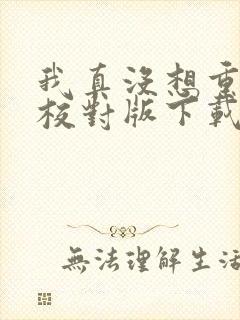 我真沒想重
校對版下載
無法理解生活